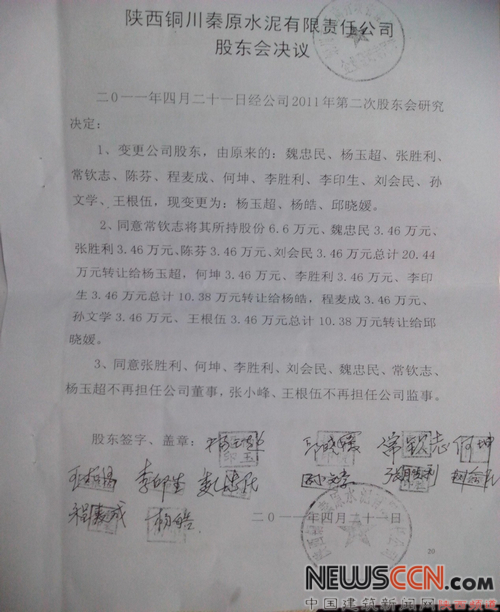 陕西铜川秦原水泥有限责任公司
股东会决议
二0一一年四月二十一日经公司2011年第二次股东会研究
决定：
1、变更公司股东，由原来的：魏忠民、杨玉超、张胜利、
常钦志、陈芬、程麦成、何坤、李胜利、李印生、刘会民、孙
文学、王根伍，现变更为：杨玉超、杨皓、邱晓媛。
2、同意常钦志将其所持股份6.6万元、魏忠民3.46万元、
张胜利3.46万元、陈芬3.46万元、刘会民3.46万元总计20.44
万元转让给杨玉超，何坤3.46万元、李胜利3.46万元、李印
生3.46万元总计10.38万元转让给杨皓，程麦成3.46万元、
孙文学3.46万元、王根伍3.46万元总计10.38万元转让给邱
晓媛。
3、同意张胜利、何坤、李胜利、刘会民、魏忠民、常钦志、
杨玉超不再担任公司董事，张小峰、王根伍不再担任公司监事。
股东签字、盖章：杨玉超 邱晓媛 常钦志 何坤
李印生
程麦成 杨皓
二0一一年四月二十一日
NEWSCCN.COM
中国建筑新闻网陕西频道